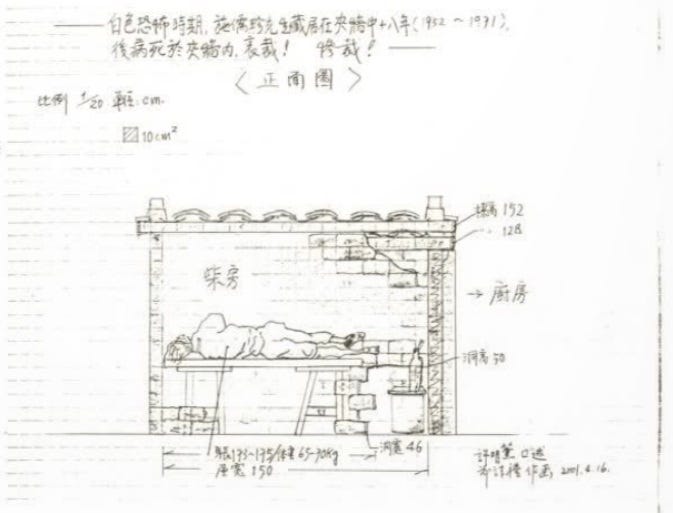 白色恐怖時期, 施儒珍先生藏居在夾牆中十八年(1952~1971),
後病死於夾牆內, 哀哉! 慘哉!
〈正面圖〉
比例 1/20 單位: cm.
10cm²
高 152
128
柴房
→ 廚房
洞高 50
洞寬 46
身長173~175/体重65-70kg
寬 150
口述
作画, 2001.4.16.